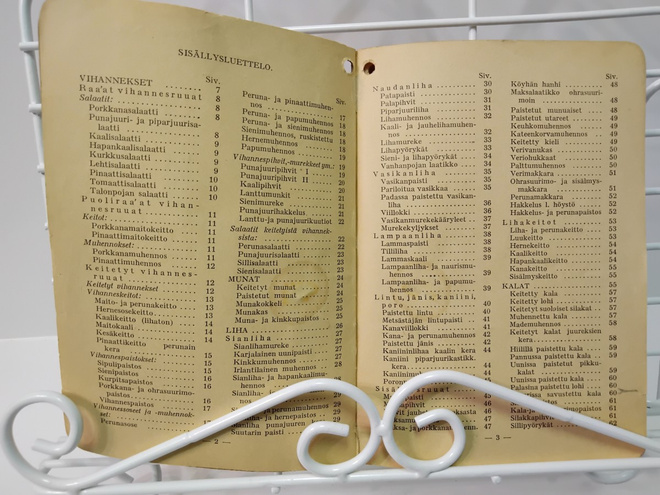 SISÄLLYSLUETTELO.
Siv.
VIHANNEKSET ........ 7
Raa'at vihannesruuat 8
Salaatit: ........ 8
Porkkanasalaatti ........ 8
Punajuuri- ja piparjuurisa-
laatti ........ 8
Kaalisalaatti ........ 9
Hapankaalisalaatti ........ 9
Kurkkusalaatti ........ 9
Lehtisalaatti ........ 9
Pinaattisalaatti ........ 10
Tomaattisalaatti ........ 10
Talonpojan salaatti ........ 10
Puoliraa'at vihan-
nesruuat ........ 11
Keitot: ........ 11
Porkkanamaitokeitto ........ 11
Pinaattimaitokeitto ........ 11
Muhennokset: ........ 11
Porkkanamuhennos ........ 11
Pinaattimuhennos ........ 12
Keitetyt vihannes-
ruuat ........ 12
Keitetyt vihannekset ........ 12
Vihanneskeitot: ........ 13
Maito- ja perunakeitto ........ 13
Hernesosekeitto ........ 13
Kaalikeitto (lihaton) ........ 14
Maitokaali ........ 14
Kesäkeitto ........ 14
Pinaattikeitto perunain
kera ........ 15
Vihannespaistokset: ........ 15
Sipulipaistos ........ 15
Sienipaistos ........ 16
Kurpitsapaistos ........ 16
Porkkana- ja ohrasuurimo-
paistos ........ 16
Vihannespaistos ........ 17
Vihannessoseet ja -muhennok-
set:
Perunasose
Siv.
Peruna- ja pinaattimuhen-
nos ........ 17
Peruna- ja papumuhennos 18
Peruna- ja sienimuhennos 18
Sienimuhennos, ruskistettu 18
Hernemuhennos ........ 18
Papumuhennos ........ 19
Vihannespihvit, -murekkeet ym. 19
Punajuuripihvit I ........ 19
Punajuuripihvit II ........ 20
Kaalipihvit ........ 20
Lanttumunkit ........ 20
Sienimureke ........ 21
Punajuurihakkelus ........ 21
Lanttu- ja punajuurikuutiot 21
Salaatit keitetyistä vihannek-
sista: ........ 22
Perunasalaatti ........ 22
Punajuurisalaatti ........ 22
Sillisalaatti ........ 23
Sienisalaatti ........ 23
MUNAT ........ 24
Keitetyt munat ........ 24
Paistetut munat ........ 24
Munakokkeli ........ 25
Munakas ........ 25
Muna- ja kinkkupaistos ........ 26
LIHA ........ 26
Sianliha ........ 27
Sianlihamureke ........ 27
Karjalainen uunipaisti ........ 27
Kinkkumuhennos ........ 28
Irlantilainen muhennos ........ 28
Sianliha- ja hapankaalimu-
hennos ........ 28
Sianliha- ja perunamuhennos
Sianliha- ja hernepaistos ........ 29
Sianliha punajuuren
Suutarin paisti
— 2 —
Siv.
Naudanliha ........ 30
Palapaisti ........ 30
Palapihvit ........ 31
Piparjuuriliha ........ 31
Lihamuhennos ........ 32
Kaali- ja jauhelihamuhen-
nos ........ 32
Lihamureke ........ 33
Lihapyörykät ........ 33
Sieni- ja lihapyörykät ........ 34
Vanhanpojan laatikko ........ 34
Vasikanliha ........ 34
Vasikanpaisti ........ 35
Pariloitua vasikkaa ........ 35
Padassa paistettu vasikan-
liha ........ 36
Viillokki ........ 36
Vasikanmurekekääryleet ........ 37
Murekekyljykset ........ 37
Lampaanliha ........ 38
Lammaspaisti ........ 38
Tilliliha ........ 38
Lammaskaali ........ 39
Lampaanliha- ja naurismu-
hennos ........ 39
Lampaanliha- ja papumu-
hennos ........ 39
Lintu, jänis, kaniini,
poro ........ 40
Paistettu lintu ........ 40
Metsästäjän lintupaisti ........ 41
Kanaviillokki ........ 41
Kana- ja perunamuhennos 42
Paistettu jänis ........ 42
Kaniininlihaa kaalin kera
Kaniini piparjuurikastik-
keen kera
Siv.
Köyhän hanhi ........ 48
Maksalaatikko ohrasuuri-
moin ........ 48
Paistetut munuaiset ........ 48
Paistetut utareet ........ 49
Keuhkomuhennos ........ 49
Kateenkorvamuhennos ........ 49
Keitetty kieli ........ 49
Verivanukas ........ 50
Veriohukkaat ........ 50
Palttumuhennos ........ 50
Verimakkara ........ 51
Ohrasuurimo- ja sisälmys-
makkara ........ 51
Perunamakkara ........ 52
Hakkelus l. höystö ........ 52
Hakkelus- ja perunapaistos 52
Lihakeitot ........ 53
Liha- ja perunakeitto ........ 53
Luukeitto ........ 53
Hernekeitto ........ 54
Kaalikeitto ........ 54
Hapankaalikeitto ........ 54
Kanakeitto ........ 55
Sisälmyskeitto ........ 55
KALAT ........ 57
Keitetty kala ........ 57
Keitetty lohi ........ 57
Keitetyt suolaiset silakat 57
Muhennettu kala ........ 57
Mademuhennos ........ 58
Keitetyt kalat juureksien
kera ........ 58
Hiilillä paistettu kala ........ 59
Pannussa paistettu kala ........ 59
Uunissa paistetut pikku-
kalat ........ 59
Uunissa paistettu kala ........ 60
Palasina paistettu kala ........ 60
savustettu kala 60
Silakkapihvit
Sillipyörykät ........ 62
— 3 —